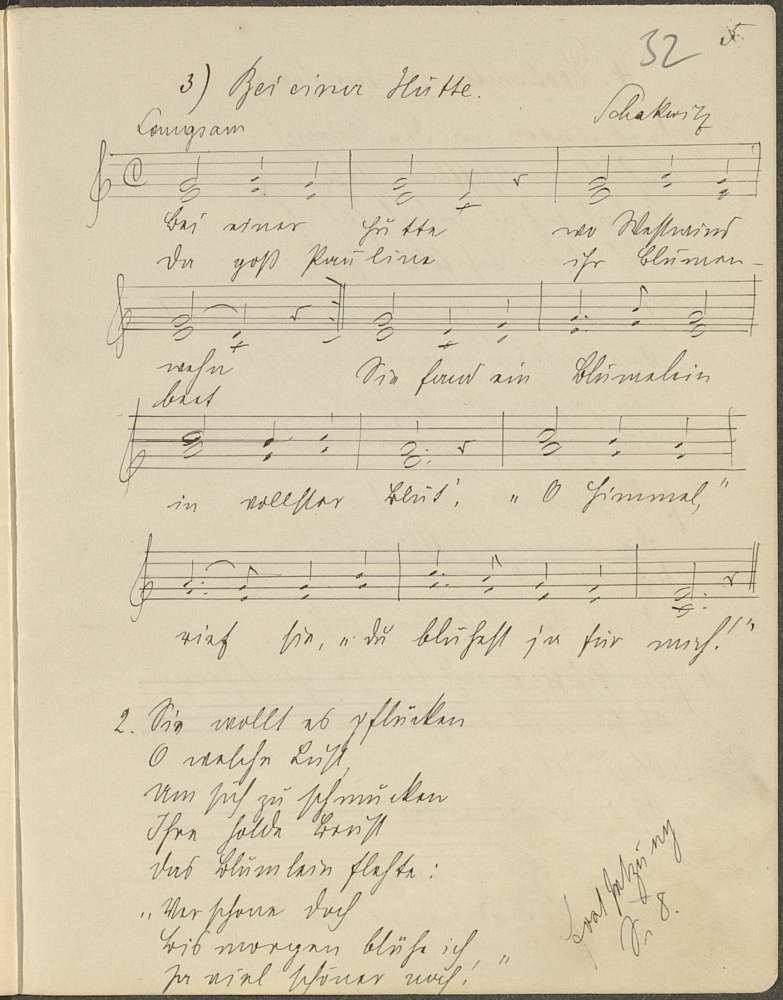 32 5.
3) Bei einer Hütte.
Langsam Schakwitz
Bei einer Hütte wo Westwind
Da goß Pauline ihr Blumen-
wehn Sie fand ein Blümelein
beet
in vollster Blüt', „O Himmel,"
rief sie, „du blühest ja für mich!"
2. Sie wollt es pflücken
O welche Lust,
Um sich zu schmücken
Ihre holde Brust
Das Blümlein flehte:
„Verschone doch
Bis morgen blühe ich,
Ja viel schöner noch!"
Fortsetzung
S. 8.